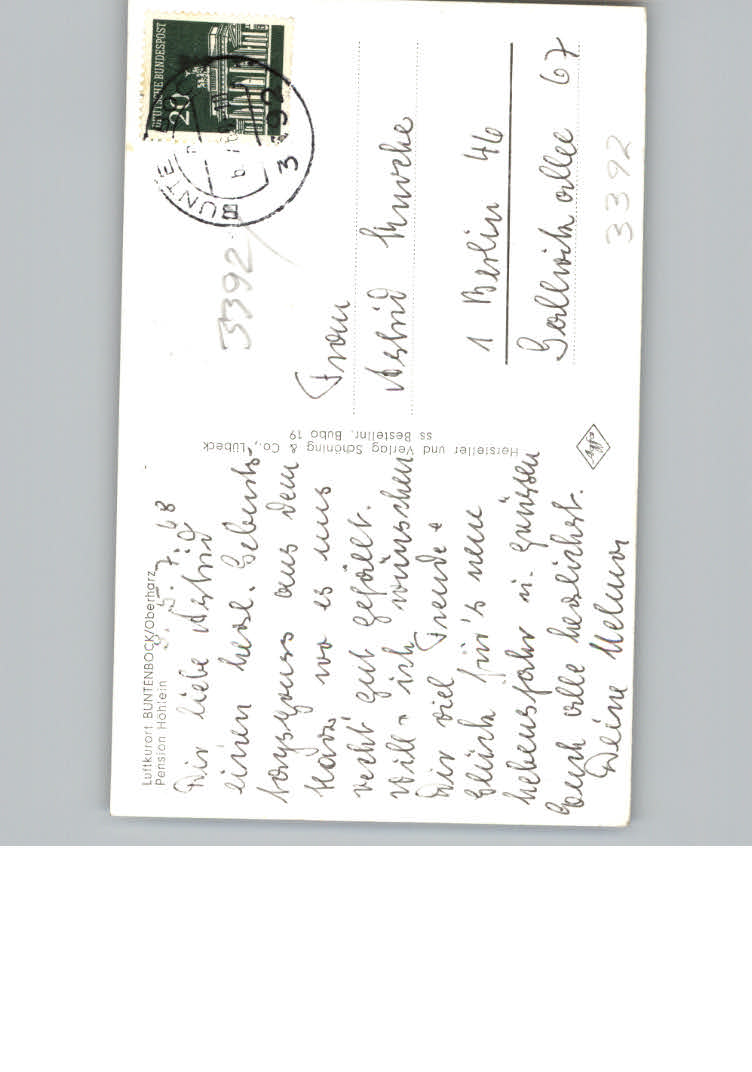 Luftkurort BUNTENBOCK/Oberharz
Pension Höhlein
5. 7. 68
Dir liebe Astrid
einen herzl. Geburts-
tagsgruss aus dem
Harz wo es uns
recht gut gefällt.
Will. ich wünschen
Dir viel Freude +
Glück für's neue
Lebensjahr u. grüssen
Euch alle herzlichst.
Deine
Hersteller und Verlag Schöning & Co., Lübeck
ss Bestellnr. Bubo 19
Agfa
DEUTSCHE BUNDESPOST
20
BUNTE
3392
3392
Frau
Astrid
1 Berlin 46
Gallwitz allee 67
3392